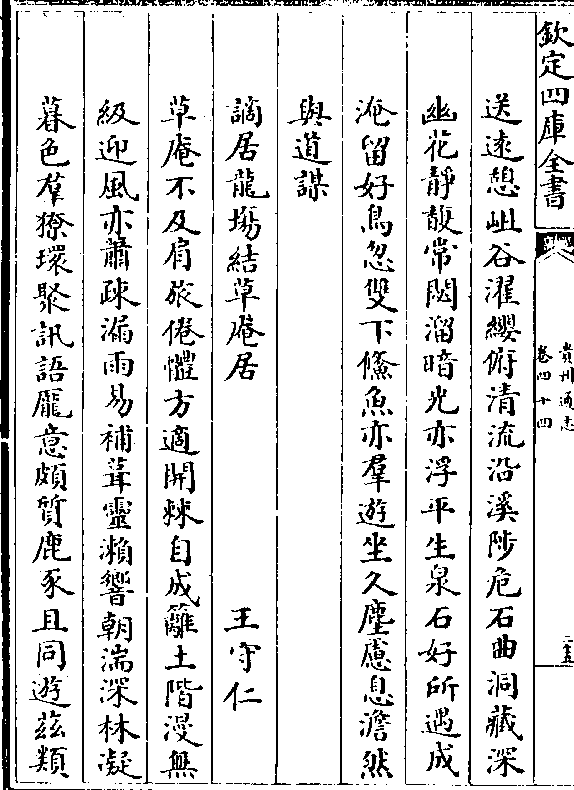 欽定四庫全書
貴州通志
卷四十四
二五
送遠憇岨谷濯纓俯清流沿溪陟危石曲洞藏深
幽花靜馥常閟溜暗光亦浮平生泉石好所遇成
淹留好鳥忽雙下鯈魚亦羣遊坐久塵慮息澹然
與道謀
謫居龍塲結草庵居 王守仁
草庵不及肩旅倦體方適開棘自成籬土階漫無
級迎風亦蕭疎漏雨易補葺靈瀨響朝湍深林凝
暮色羣獠環聚訊語厖意頗質鹿豕且同遊茲類